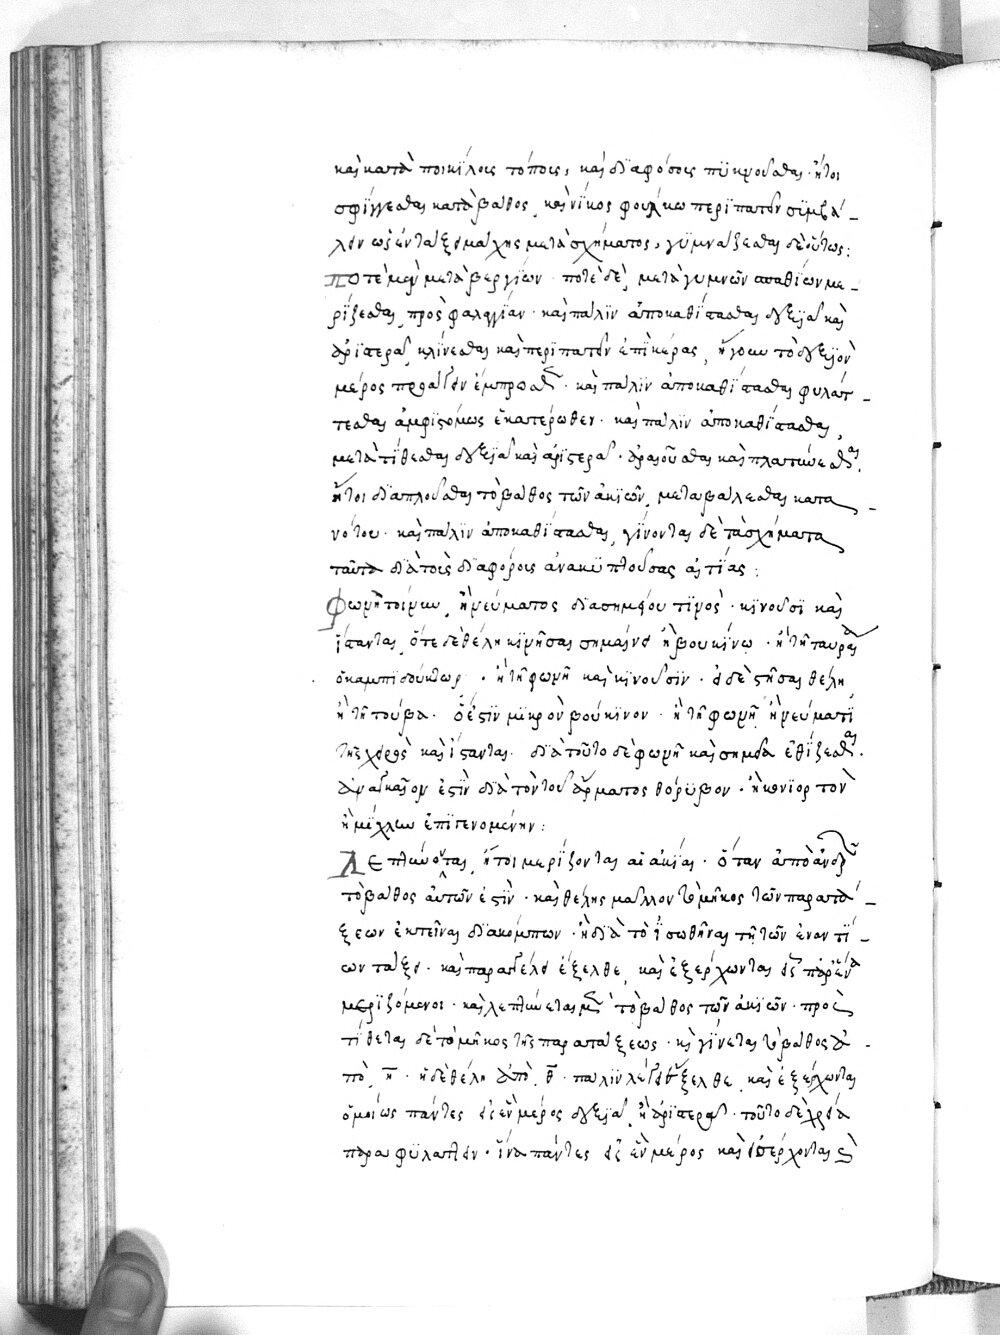 καὶ κατὰ ποικίλοις τόποις, καὶ διαφόσοις πϋκνοῦσθαι · ἤτοι
σφίγγεσθαι κατὰ βάθος καὶ νῖκος φουλκω περιπατεῖν σϊμβά
λειν ὡς ἐν τάξει μάχης μετὰ σχήματος, γυμνάζεσθαι δὲ οὕτως:
ποτὲ μὲν μετὰ βεργίων · ποτὲ δὲ μετὰ γυμνῶν σπαθίων με
ρίζεσθαι πρὸς φαλαγγίαν · καὶ πάλιν ἀποκαθίστασθαι δεξιᾶ καὶ
ἀριστερᾶ κλίνεσθαι καὶ περιπατεῖν ἐπὶ κέρας, ἤγουν τὸ δεξιὸν
μέρος προάγειν ἔμπροσθεν · καὶ πάλιν ἀποκαθίστασθαι φυλάτ
τεσθαι ἀμφιστόμως ἑκατέρωθεν · καὶ πάλιν ἀποκαθίστασθαι,
μετατίθεσθαι δεξιᾶ καὶ ἀριστερᾶ · ἀραιοῦσθαι καὶ πλατύνεσθαι,
ἤτοι διαπλοῦσθαι τὸ βάθος τῶν ἀκιῶν, μεταβάλεσθαι κατα
νότου · καὶ πάλιν ἀποκαθίστασθαι, γίνονται δὲ τὰ σχήματα
ταῦτα διὰ τοὶς διαφόροις ἀνακυπτούσας αἰτίας:
Φωνῆ τοίνυν, ἢ νεύματος διασημείου τινὸς · κινοῦσι καὶ
ἵστανται, ὅτε δὲ θέλη κινῆσαι σημαίνει ἢ βουκίνω · ἢ τῆ ταυραία
ὁ καμπιδούκτωρ · ἢ τῆ φωνῆ καὶ κινοῦσϊν · εἰ δὲ στῆσαι θέλη
ἢ τῆ τούβα · ὅ ἐστϊν μϊκρὸν βούκινον · ἢ τῆ φωνῆ ἢ νεύματϊ
τῆς χειρὸς καὶ ἵστανται · διὰ τοῦτο δὲ φωνῆ καὶ σημεία ἐθίζεσθαι
ἀναγκαῖον ἐστὶν διὰ τὸν τοῦ ἅρματος θόρυβον · ἢ κονιορτὸν
ἢ μίχλην ἐπιγενομένην:
Λεπτύνονται, ἤτοι μερίζονται αἱ ἀκίαι · ὅταν ἀπὸ
τὸ βάθος αὐτῶν ἐστὶν · καὶ θέλης μᾶλλον τὸ μῆκος τῶν παρατά
ξεων ἐκτεῖναι διακόμπων · ἢ διὰ τὸ ἰσωθῆναι τῆ τῶν ἐναντί
ων τάξει · καὶ παραγγέλει ἔξελθε, καὶ ἐξέρχωνται εἰς παρένα
μεριζόμενοι · καὶ λεπτύνεται μὲν τὸ βάθος τῶν ἀκιῶν · προσ
τίθεται δὲ τὸ μῆκος τῆς παρατάξεως · καὶ γίνεται τὸ βάθος ἀ
πὸ η · ἢ δὲ θέλη ἀπὸ θ · πάλιν λέγει ἔξελθε, καὶ ἐξέρχωνται
ὁμοίως πάντες εἰς ἓν μέρος δεξιᾶ ἢ ἀριστερᾶ · τοῦτο δὲ χρεία
παραφϋλάττειν · ἵνα πάντες εἰς ἓν μέρος καὶ ἐξέρχονται